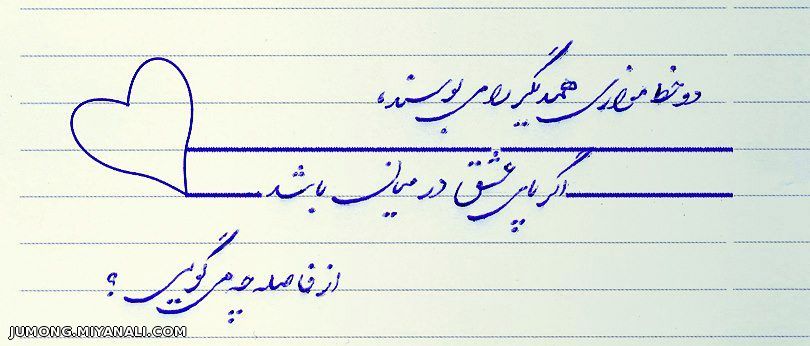 دو خط موازی همدیگر را می بوسند،
اگر پای عشق در میان باشد
از فاصله چه می گویی ؟
JUMONG.MIYANALI.COM